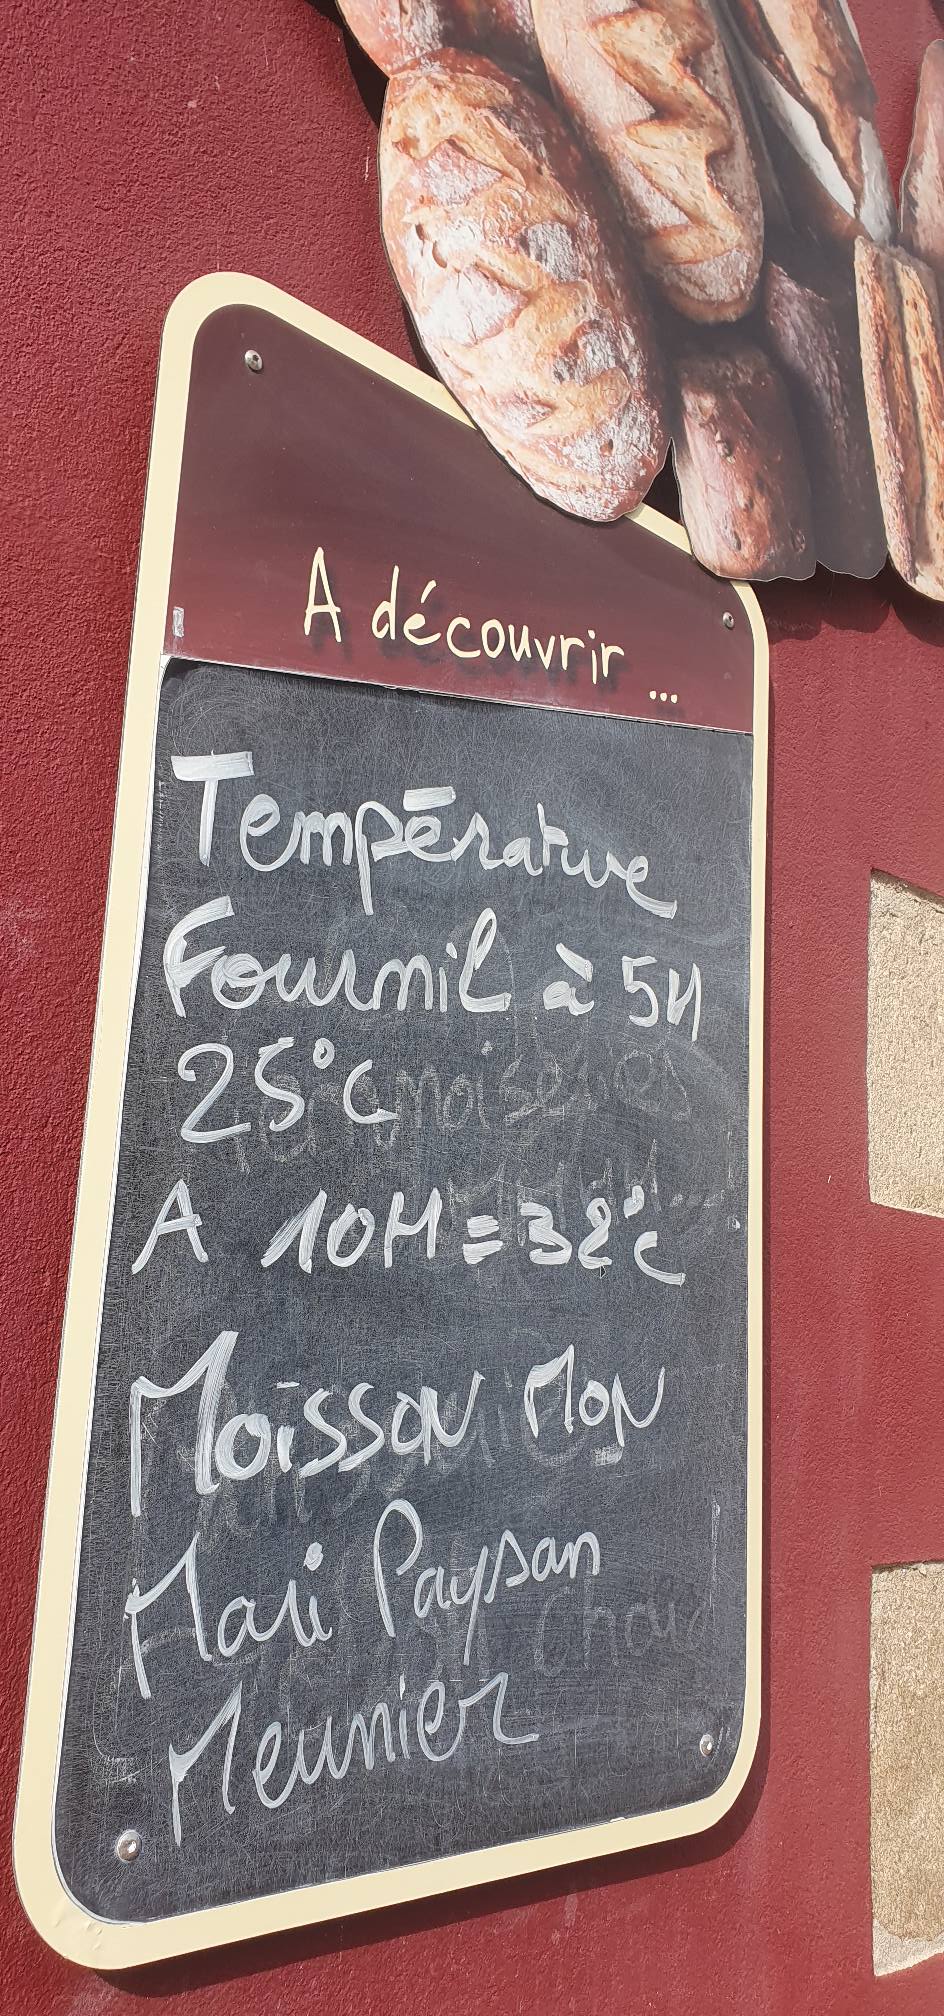 A découvrir ...
Température
Fournil à 5H
25°C
A 10H = 38°C
Moisson Mon
Mari Paysan
Meunier